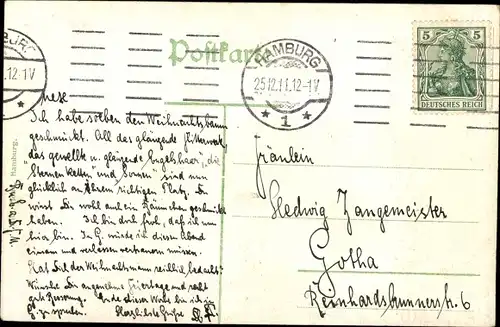 Postkarte
HAMBURG
25.12.11.12-1V
* 1 *
BURG
.12-1V
*
5 5
DEUTSCHES REICH
Hamburg.
Ich habe soeben den Weihnachtsbaum
geschmückt. All das glänzende Flitterwerk,
"das gewellt u. glänzende Engelshaar", die
Sternenketten und Sonnen sind nun
glücklich an ihren richtigen Platz. Du
wirst Du wohl auch ein Bäumchen geschmückt
haben. Ich bin doch froh, daß ich nun
hier bin. In G. würde ich diesen Abend
einsam und verlassen vertrauern müssen.
Hat Dich der Weihnachtsmann reichlich bedacht?
Wünsche Dir angenehme Feiertage und recht
gute Besserung. Ende dieser Woche bin ich in
G. zu sprechen. Herzlichste Grüße
Fräulein
Hedwig Zangemeister
Gotha
Reinhardsbrunnerstr. 6